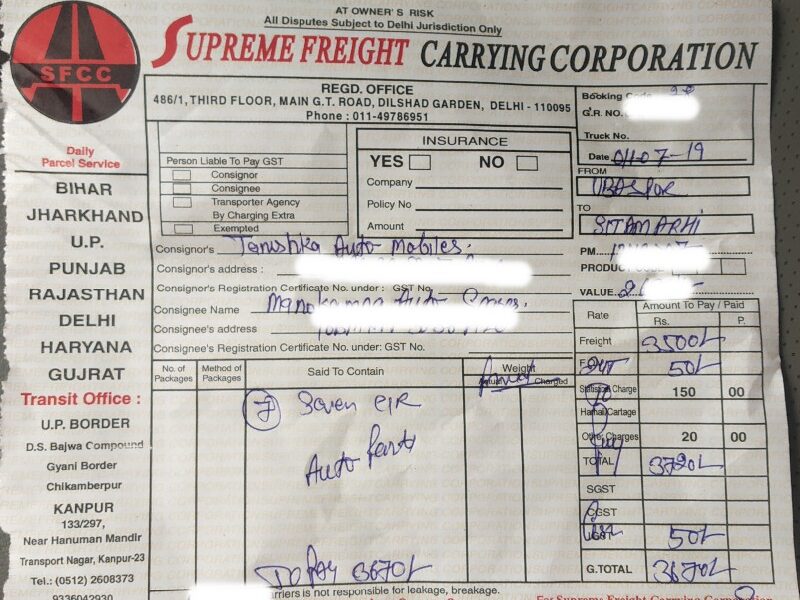 AT OWNER'S RISK
All Disputes Subject to Delhi Jurisdiction Only
SUPREME FREIGHT CARRYING CORPORATION
SFCC
REGD. OFFICE
486/1, THIRD FLOOR, MAIN G.T. ROAD, DILSHAD GARDEN, DELHI - 110095
Phone : 011-49786951
Booking
G.R. NO.
Truck No.
Date 01-07-19
FROM
TO
SITAMARHI
PM
PRODUCT CODE
VALUE
Daily
Parcel Service
BIHAR
JHARKHAND
U.P.
PUNJAB
RAJASTHAN
DELHI
HARYANA
GUJRAT
Transit Office :
U.P. BORDER
D.S. Bajwa Compound
Gyani Border
Chikamberpur
KANPUR
133/297,
Near Hanuman Mandir
Transport Nagar, Kanpur-23
Tel.: (0512) 2608373
9336042930
Person Liable To Pay GST
Consignor
Consignee
Transporter Agency
By Charging Extra
Exempted
INSURANCE
YES NO
Company
Policy No
Amount
Consignor's Tanishka Auto Mobiles.
Consignor's address :
Consignor's Registration Certificate No. under : GST No.
Consignee Name Auto
Consignee's address
Consignee's Registration Certificate No. under: GST No.
No. of Packages Method of Packages Said To Contain Weight Charged
7 Seven
Auto Parts
To Pay 3670/-
Rate Amount To Pay / Paid
Rs. P.
Freight 3500/-
50/-
Charge 150 00
Hamal/Cartage
Other Charges 20 00
TOTAL 3720/-
SGST
CGST
50/-
G.TOTAL 3670/-
arriers is not responsible for leakage, breakage.
For Supreme Freight Carrying Corporation